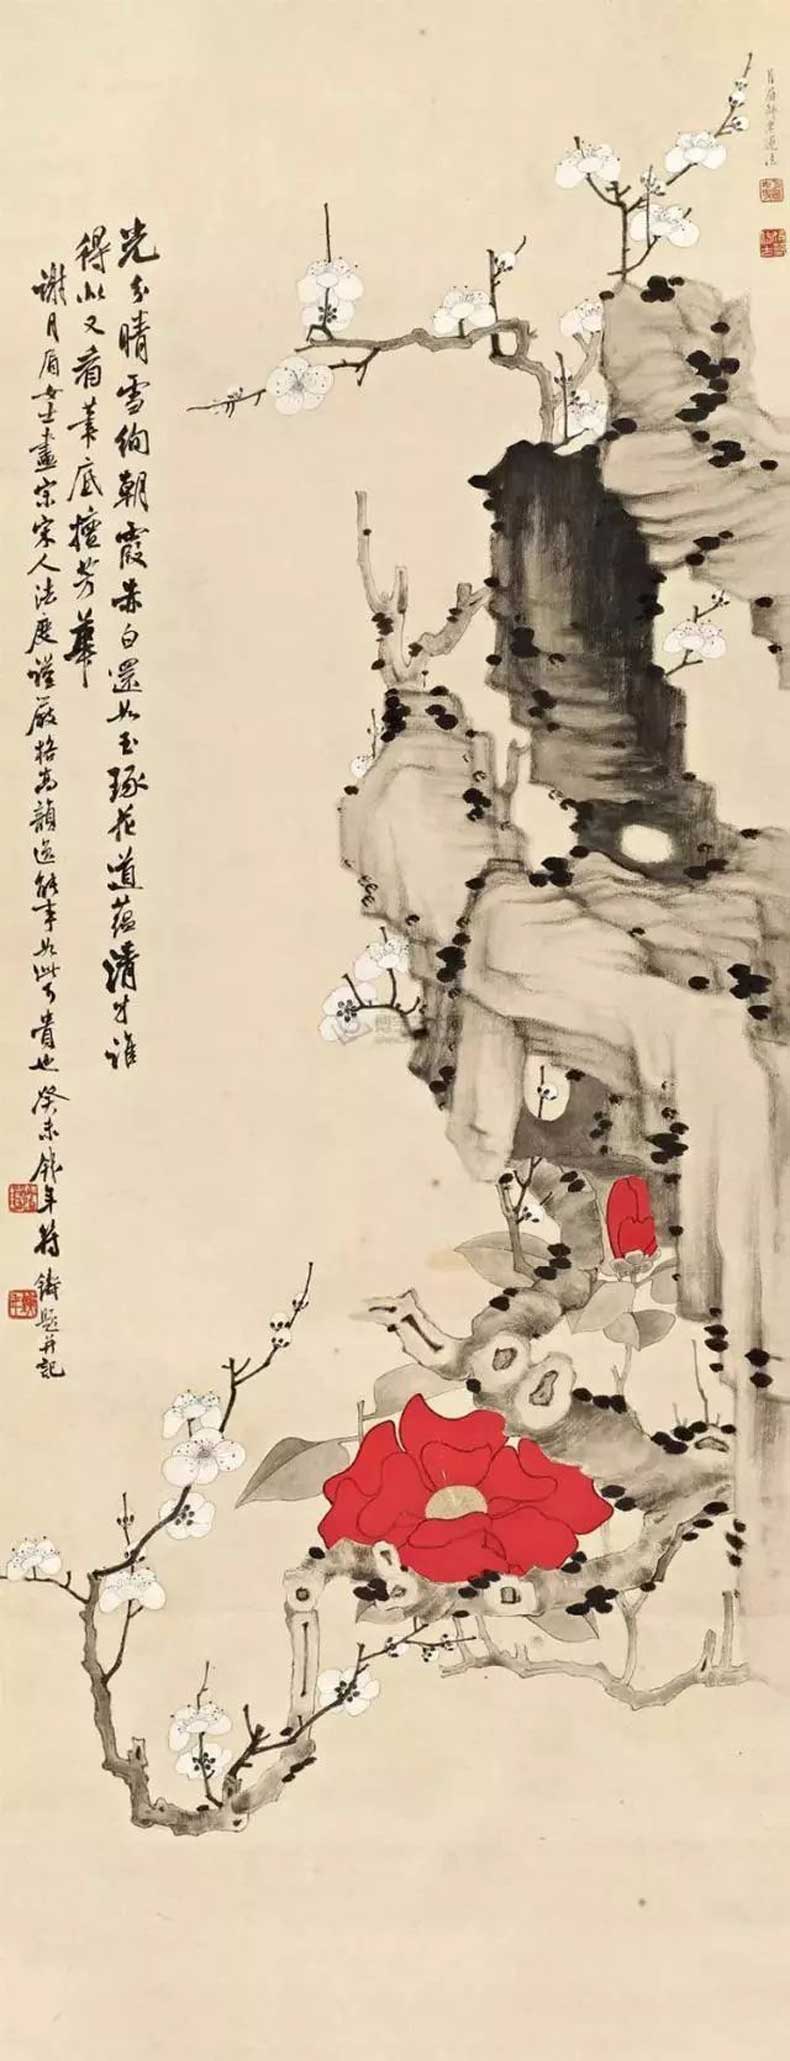 月眉師老蓮法
光分晴雪絢朝霞赤白還如玉琢花道蘊清才誰
得似又看筆底擅芳華
謝月眉女士畫宗宋人法度謹嚴格高韻逸能事如此可貴也癸未銕年符鑄題并記